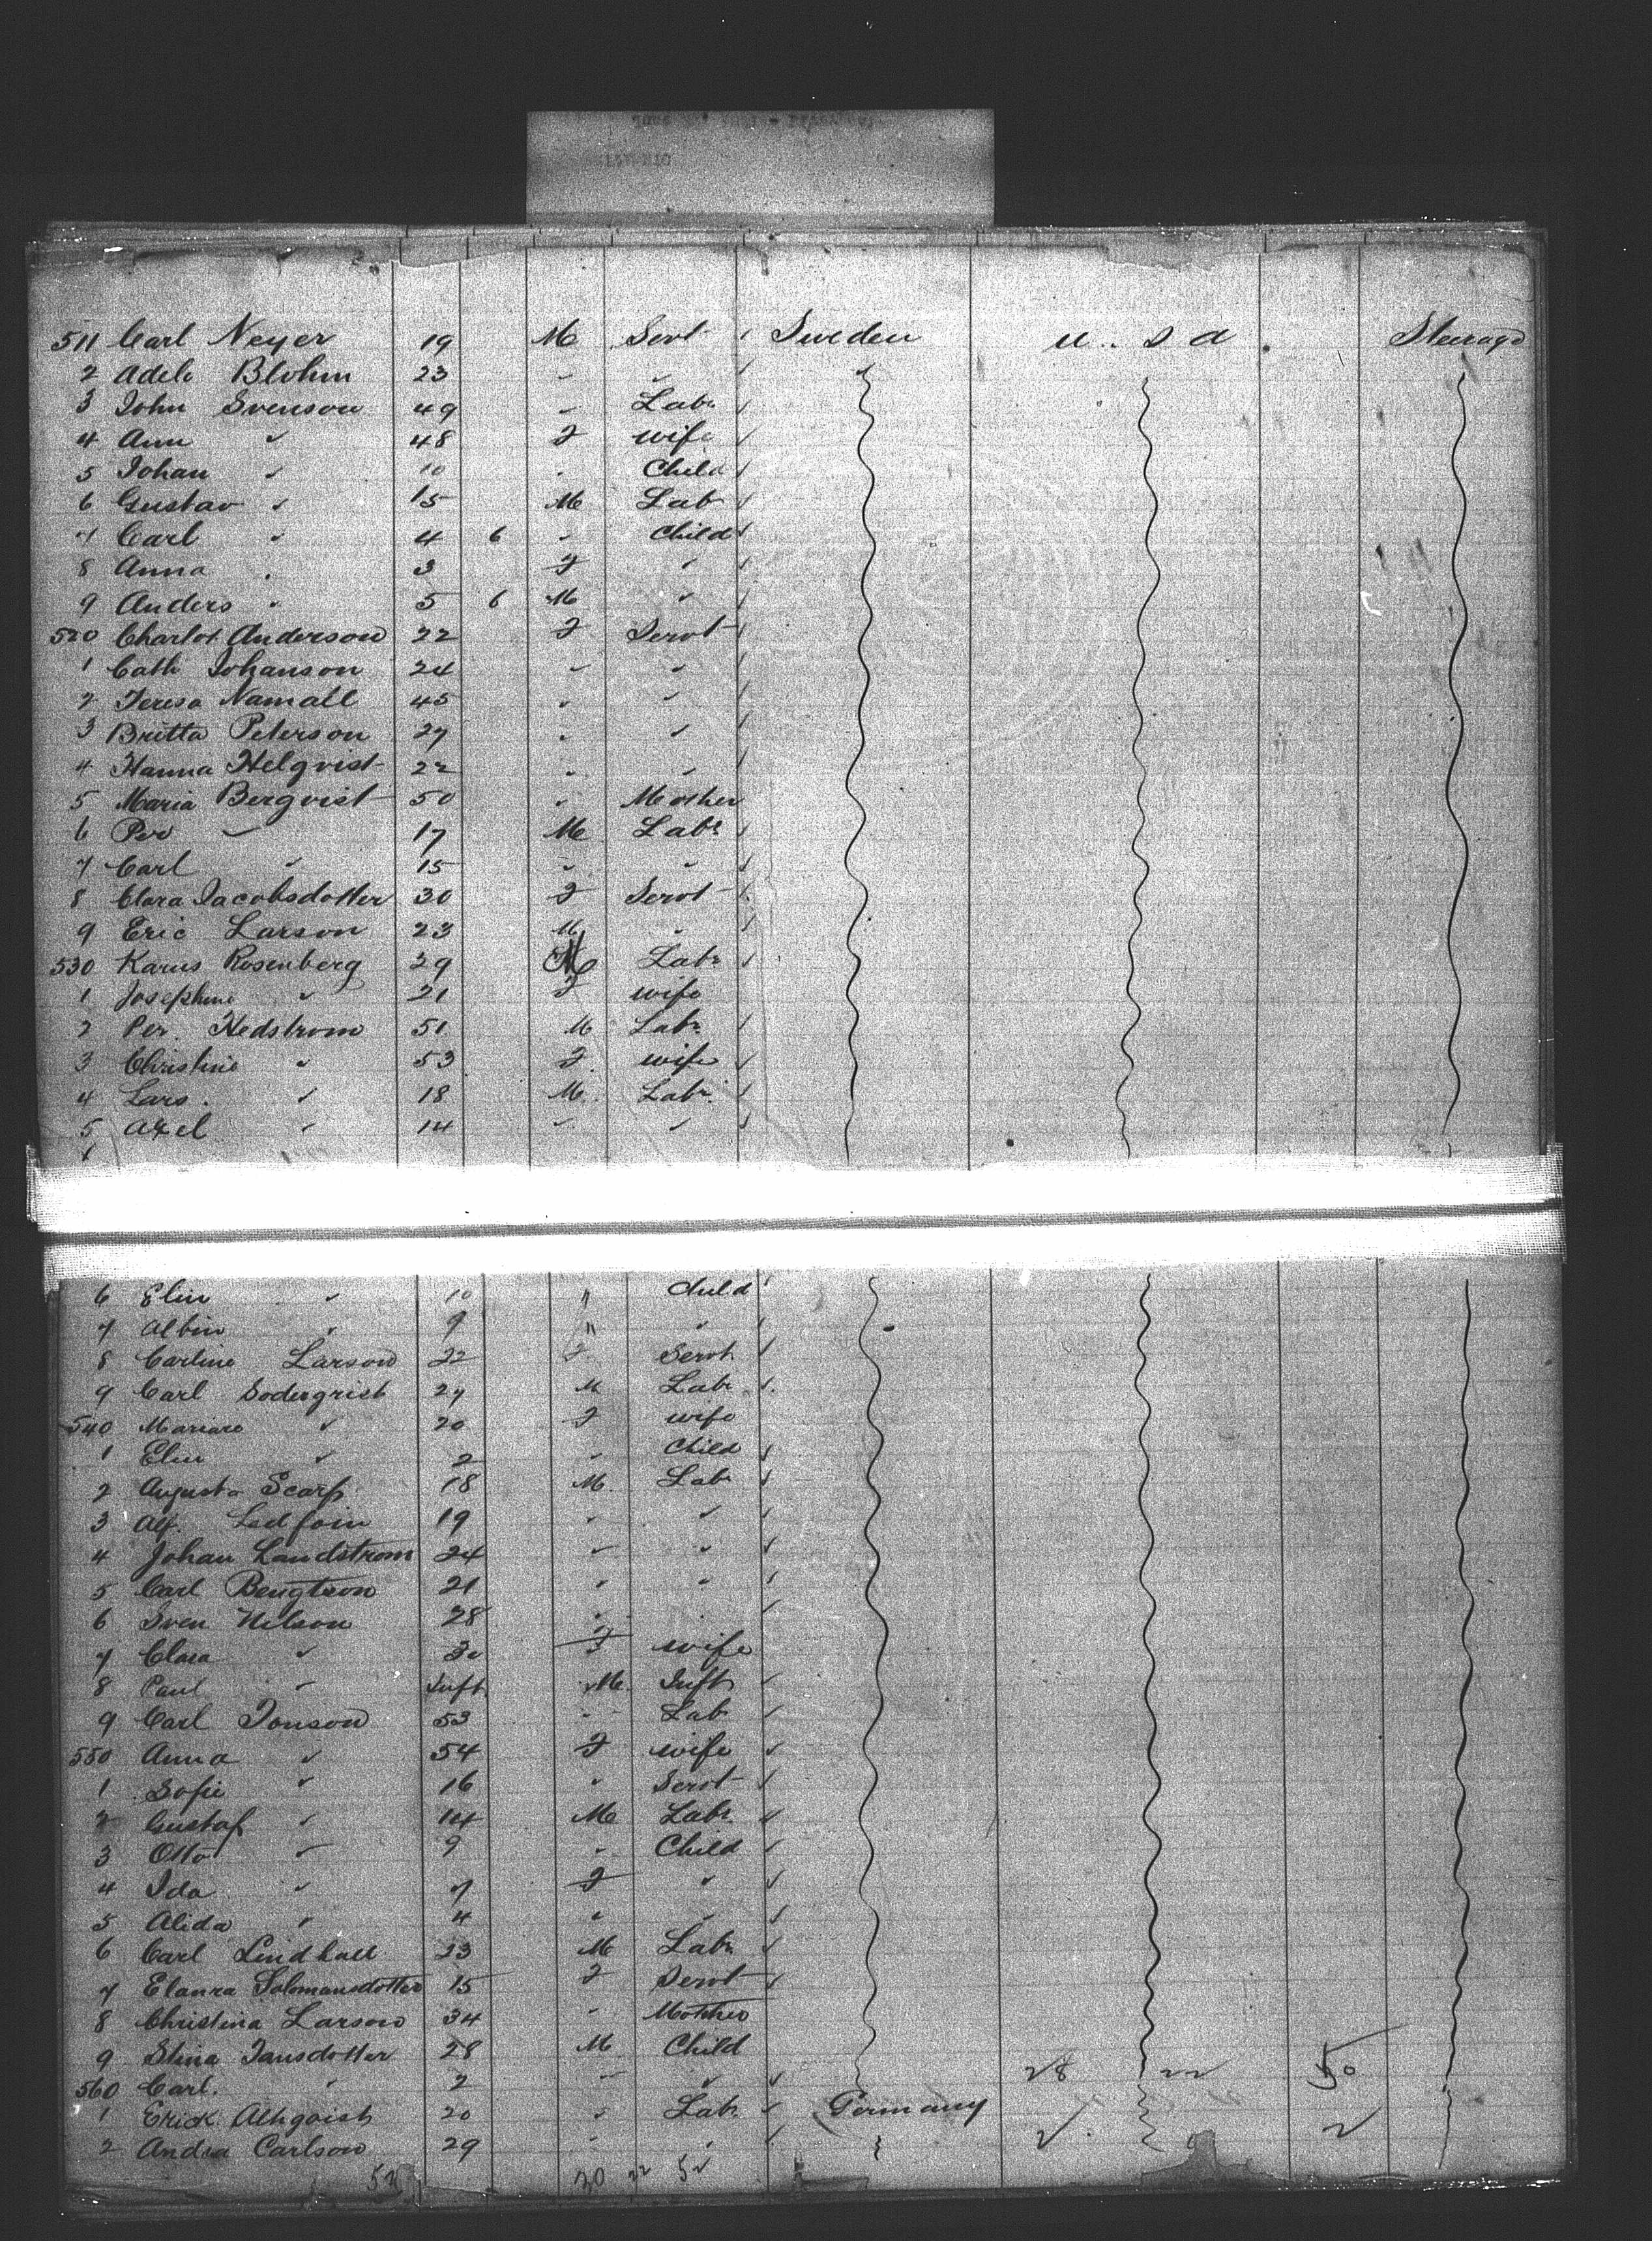 511 Carl Neyer 19 M Servt Sweden U.S A Steerage
2 Adele Blohm 23 " "
3 John Svenson 49 " Labr
4 Ann " 48 F wife
5 Johan " 10 " Child
6 Gustav " 15 M Labr
7 Carl " 4 6 " Child
8 Anna " 3 F "
9 Anders " 5 6 M "
520 Charlot Anderson 22 F Servt
1 Cath Johanson 24 " "
2 Teresa Namall 45 " "
3 Britta Peterson 27 " "
4 Hanna Helqvist 22 " "
5 Maria Bergvist 50 " Mother
6 Per " 17 M Labr
7 Carl " 15 " "
8 Clara Jacobsdotter 30 F Servt
9 Eric Larson 23 M "
530 Karus Rosenberg 29 M Labr
1 Josephine " 21 F wife
2 Per. Hedstrom 51 M Labr
3 Christine " 53 F wife
4 Lars. " 18 M. Labr.
5 Axel " 14 " "
6 Elin " 10 " Child
7 Albin " 9 " "
8 Carline Larson 22 F Servt
9 Carl Sodergrist 27 M Labr
540 " 20 F wife
1 Elin " 2 " Child
2 Augusta Scarp 18 M. Labr
3 Alf. 19 " "
4 Johan Landstrom 24 " "
5 Carl Bengtson 21 " "
6 Sven Nilson 28 " "
7 Clara " 30 F wife
8 Paul " Inft M. Inft
9 Carl Jonson 53 " Labr
550 Anna " 54 F wife
1 Sofie " 16 " Servt
2 Gustaf " 14 M Labr
3 Otto " 9 " Child
4 Ida " 7 F "
5 Alida " 4 " "
6 Carl Lindhall 23 M Labr
7 Elanra Solomansdotter 15 F Servt
8 Christina Larson 34 " Mother
9 Stina Jansdotter 28 M Child
560 Carl. " 2 " " 28 22 50
1 Erick Alhgoist 20 " Labr Germany
2 Andra Carlson 29 " "
52 30 22 52